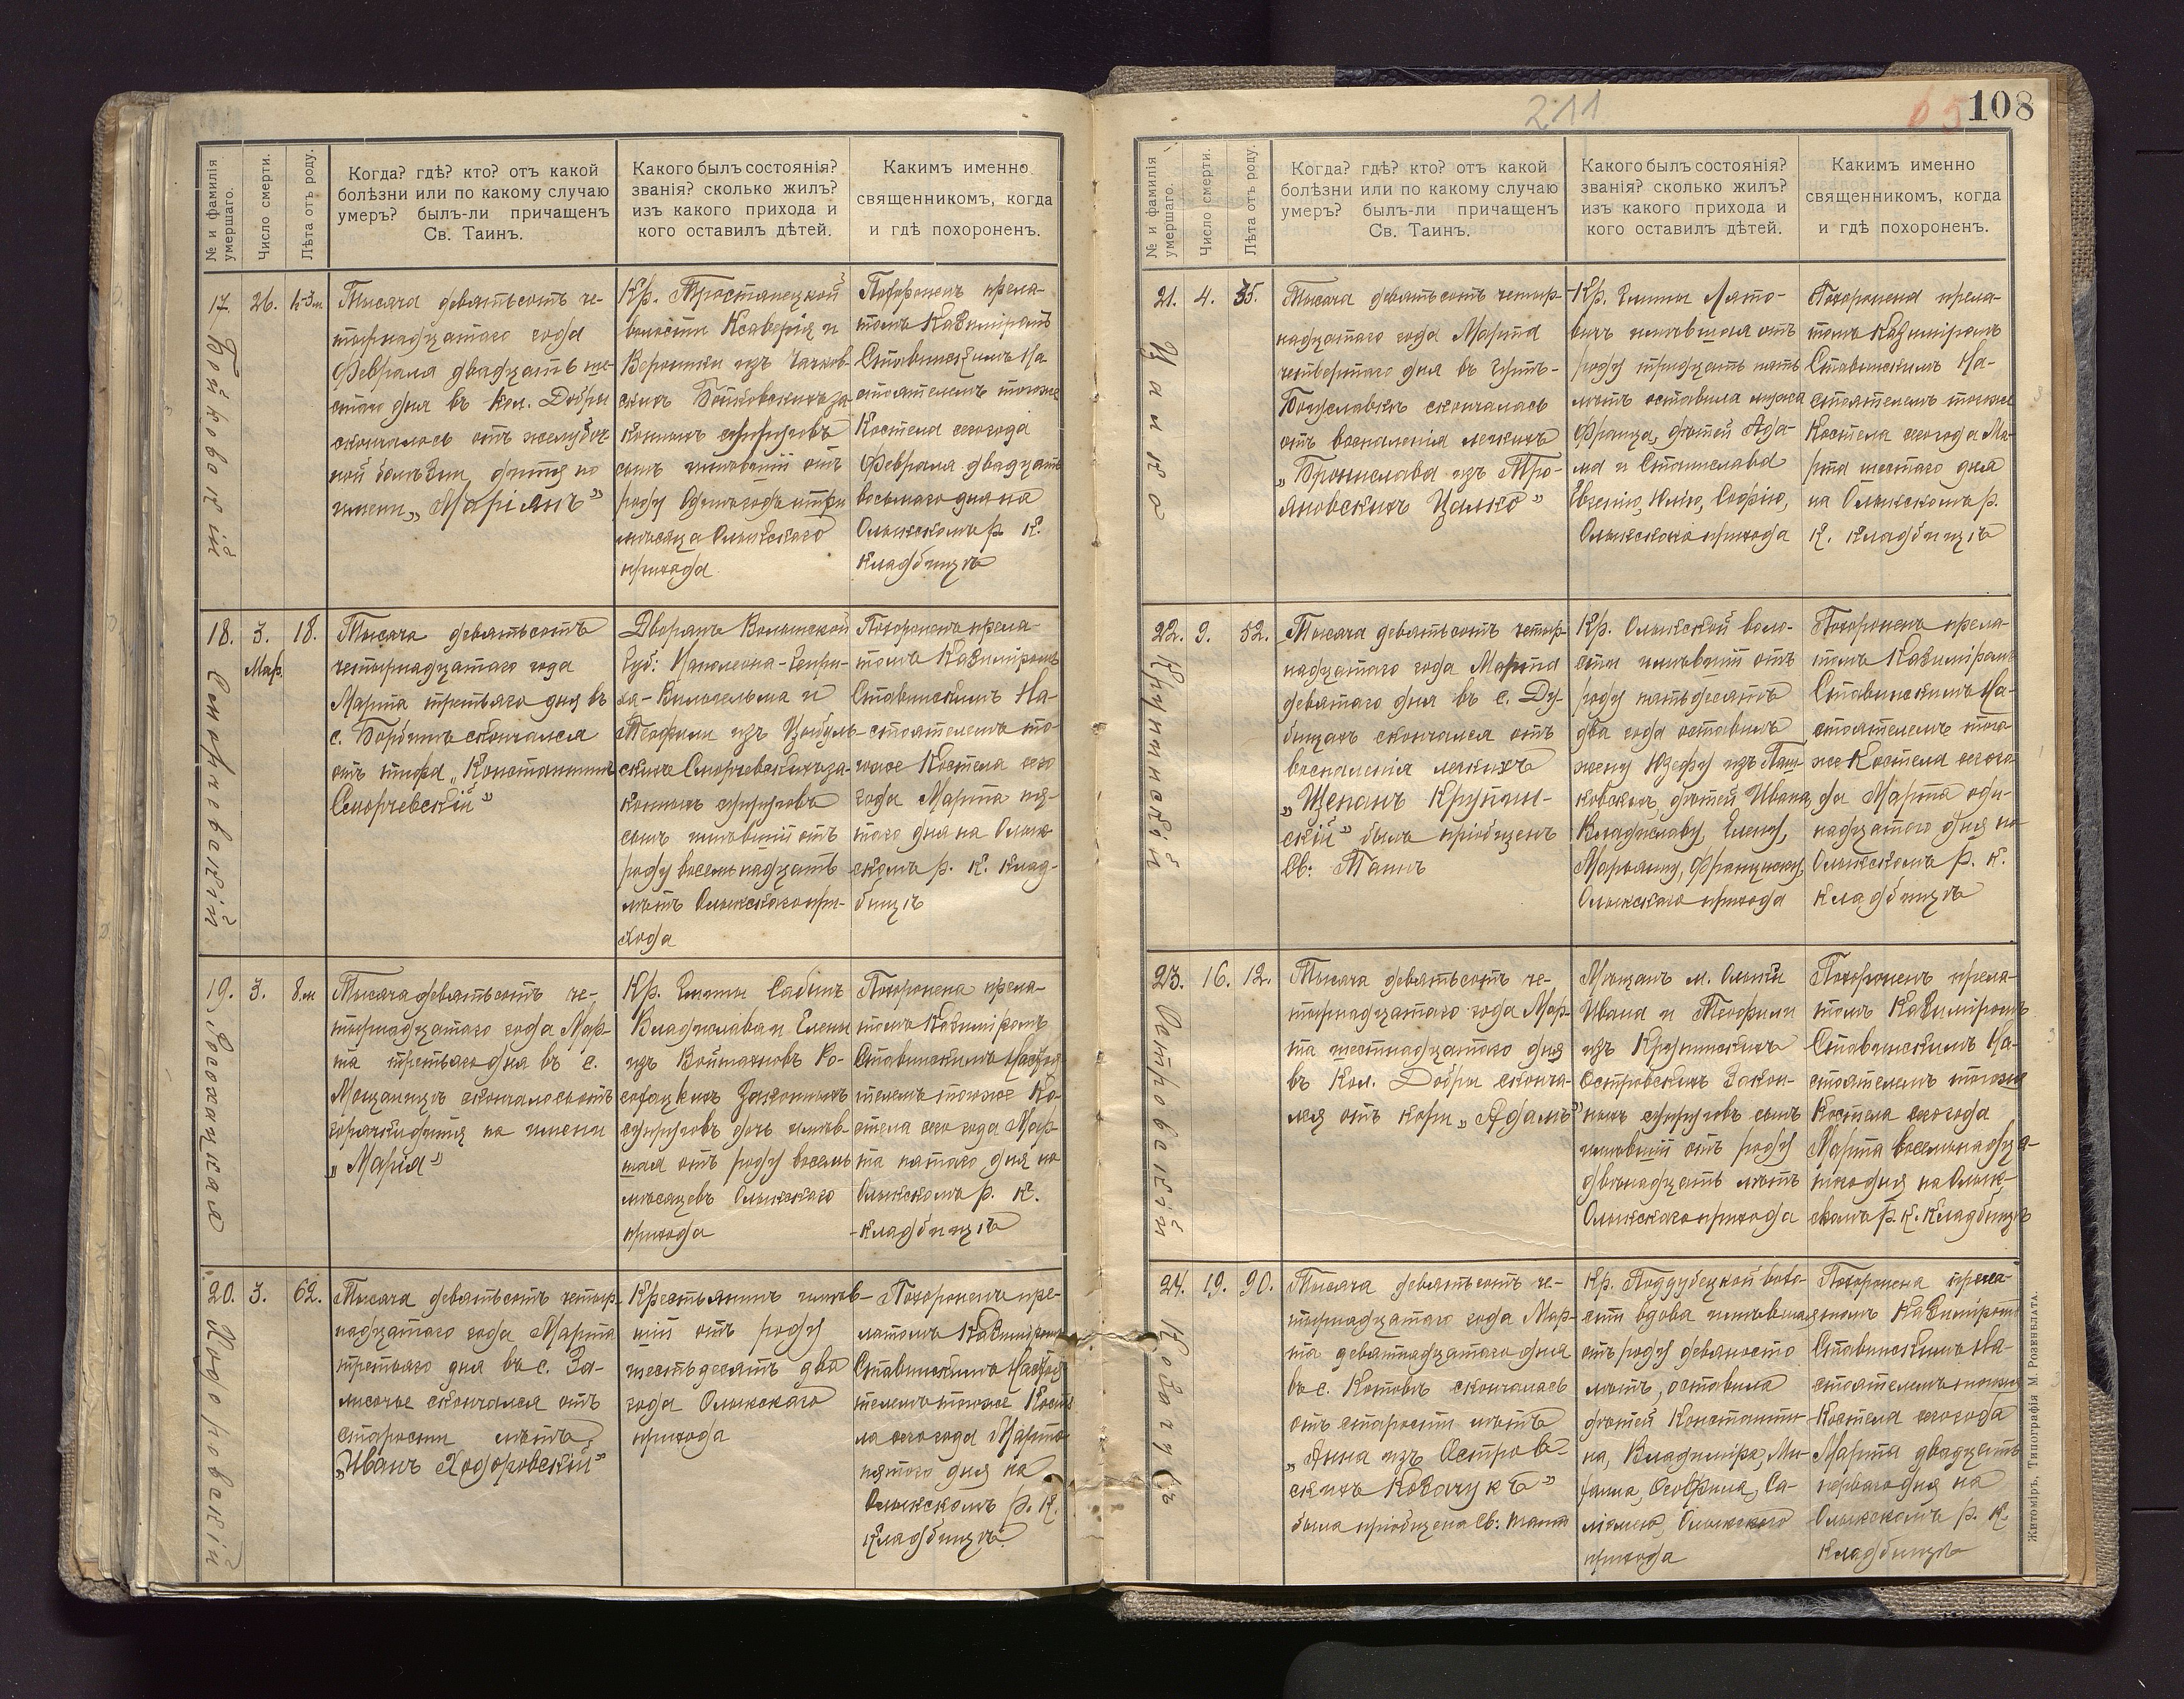 211
65
108
№ и фамилія умершаго.
Число смерти.
Лѣта отъ роду.
Когда? гдѣ? кто? отъ какой
болѣзни или по какому случаю
умеръ? былъ-ли причащенъ
Св. Таинъ.
Какого былъ состоянія?
званія? сколько жилъ?
изъ какого прихода и
кого оставилъ дѣтей.
Какимъ именно
священникомъ, когда
и гдѣ похороненъ.
17. Бойковскій
26.
Тысяча девятьсотъ че-
тырнадцатаго года
Февраля двадцать ше-
стаго дня въ кол. Добри
скончалось отъ желудоч-
ной болѣзни дитя по
имени „Маріянъ"
Кр. Тростянецкой
волости Ксаверія и
Вероники изъ
законныхъ супруговъ
сынъ имѣвшій отъ
роду одинъ годъ и три
мѣсяца Олыкскаго
прихода
Похороненъ прела-
томъ Казиміромъ
Ставинскимъ На-
стоятелемъ тогоже
Костела сего года
Февраля двадцать
восьмаго дня на
Олыкскомъ р. к.
кладбищѣ
18. Сморчевскій
3.
Мар.
18.
Тысяча девятьсотъ
четырнадцатаго года
Марта третьяго дня въ
с. Борбинъ скончался
отъ тифа „Константинъ
Сморчевскій"
Дворянъ Волынской
Губ: Наполеона-Генри-
ха-Вильгельма и
Теофили изъ Цыбуль-
скихъ Сморчевскихъ за-
конныхъ супруговъ
сынъ имѣвшій отъ
роду восемьнадцать
лѣтъ Олыкскаго при-
хода
Похороненъ прела-
томъ Казиміромъ
Ставинскимъ На-
стоятелемъ то-
гоже Костела сего
года Марта пя-
таго дня на Олык-
скомъ р. к. клад-
бищѣ
19. Рогозицкая
3.
8.м
Тысяча девятьсотъ че-
тырнадцатаго года Мар-
та третьяго дня въ с.
Мощаницѣ скончалось отъ
горячки дитя по имени
„Марія"
Кр. Гмины Сабинъ
Владислава и Елены
изъ Войтаховъ
законныхъ
супруговъ дочь имѣв-
шая отъ роду восемь
мѣсяцевъ Олыкскаго
прихода
Похоронена прела-
томъ Казиміромъ
Ставинскимъ Настоя-
телемъ тогоже Ко-
стела сего года Мар-
та пятаго дня на
Олыкскомъ р. к.
кладбищѣ
20. Ходоровскій
3.
62.
Тысяча девятьсотъ четыр-
надцатаго года Марта
третьяго дня въ с. За-
лисочье скончался отъ
старости лѣтъ
„Иванъ Ходоровскій"
Крестьянинъ имѣв-
шій отъ роду
шестьдесятъ два
года Олыкскаго
прихода
Похороненъ пре-
латомъ Казиміромъ
Ставинскимъ Настоя-
телемъ тогоже Косте-
ла сего года Марта
пятаго дня на
Олыкскомъ р. к.
кладбищѣ.
№ и фамилія умершаго.
Число смерти.
Лѣта отъ роду.
Когда? гдѣ? кто? отъ какой
болѣзни или по какому случаю
умеръ? былъ-ли причащенъ
Св. Таинъ.
Какого былъ состоянія?
званія? сколько жилъ?
изъ какого прихода и
кого оставилъ дѣтей.
Какимъ именно
священникомъ, когда
и гдѣ похороненъ.
21. Цалко
4.
35.
Тысяча девятьсотъ четыр-
надцатаго года Марта
четвертаго дня въ
Богуславкѣ скончалась
отъ воспаленія легкихъ
„Брониславa изъ Тро-
яновскихъ Цалко"
Кр. Гмины Лято-
вичъ имѣвшая отъ
роду тридцать пять
лѣтъ оставила мужа
Франца, дѣтей Ада-
ма и Станислава
Евгенію, Юлію, Софію,
Олыкскаго прихода
Похоронена прела-
томъ Казиміромъ
Ставинскимъ На-
стоятелемъ тогоже
Костела сего года Ма-
рта шестаго дня
на Олыкскомъ р.
к. кладбищѣ
22. Крупинскій
9.
52.
Тысяча девятьсотъ четыр-
надцатаго года Марта
девятаго дня въ с. Ду-
бищахъ скончался отъ
воспаленія легкихъ
„Щепанъ Крупин-
скій" былъ пріобщенъ
Св: Таинъ
Кр. Олыкской воло-
сти имѣвшій отъ
роду пятьдесятъ
два года оставилъ
жену Юзефу изъ Паш-
ковскихъ, дѣтей Ивана,
Владиславу, Елену,
Марьянну, Францишку,
Олыкскаго прихода
Похороненъ прела-
томъ Казиміромъ
Ставинскимъ На-
стоятелемъ того-
же Костела сего го-
да Марта оди-
надцатаго дня на
Олыкскомъ р. к.
кладбищѣ
23. Островскій
16.
12.
Тысяча девятьсотъ че-
тырнадцатаго года Мар-
та шестнадцатаго дня
въ Кол. Добри сконча-
лся отъ кори „Адамъ"
Мѣщанъ м. Олыки
Ивана и Теофили
изъ Крупинскихъ
Островскихъ Закон-
ныхъ супруговъ сынъ
имѣвшій отъ роду
двѣнадцать лѣтъ
Олыкскаго прихода
Похороненъ прела-
томъ Казиміромъ
Ставинскимъ На-
стоятелемъ тогоже
Костела сего года
Марта восемьнадца-
таго дня на Олык-
скомъ р. к. кладбищѣ
24. Козачукъ
19.
90.
Тысяча девятьсотъ че-
тырнадцатаго года Мар-
та девятнадцатаго дня
въ с. Котовъ скончалась
отъ старости лѣтъ
„Анна изъ Островъ-
скихъ Козачукъ"
была пріобщена Св: Таинъ
Кр. Поддубецкой воло-
сти вдова имѣвшая
отъ роду девяносто
лѣтъ, оставила
дѣтей Константи-
на, Владиміра, Ми-
хаила,
Олыкскаго
прихода
Похоронена прела-
томъ Казиміромъ
Ставинскимъ На-
стоятелемъ тогоже
Костела сего года
Марта двадцать
перваго дня на
Олыкскомъ р. к.
кладбищѣ
Житоміръ, Типографія М. Розенблата.